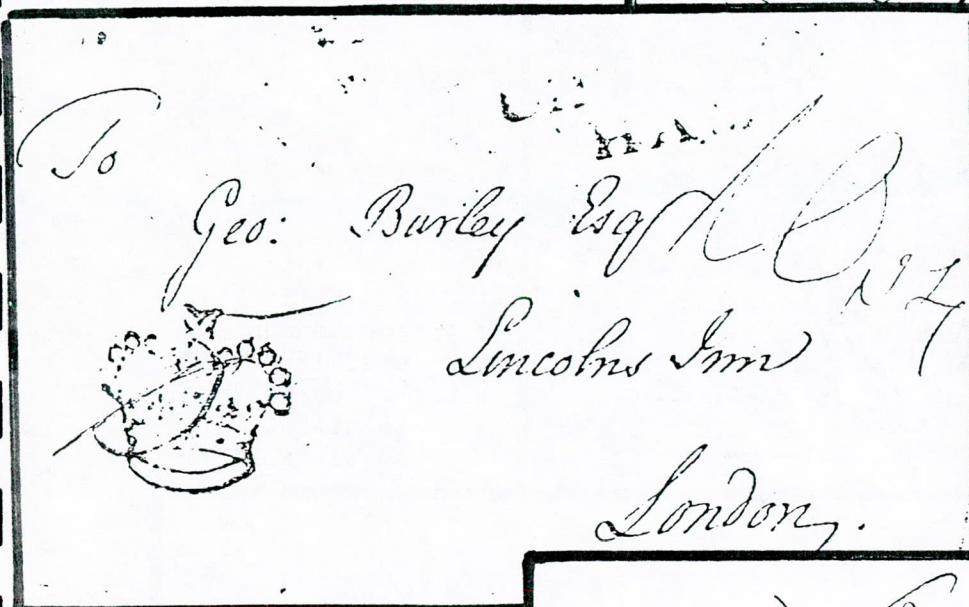 To
Geo: Burley Esqr
Lincolns Inn
London,.